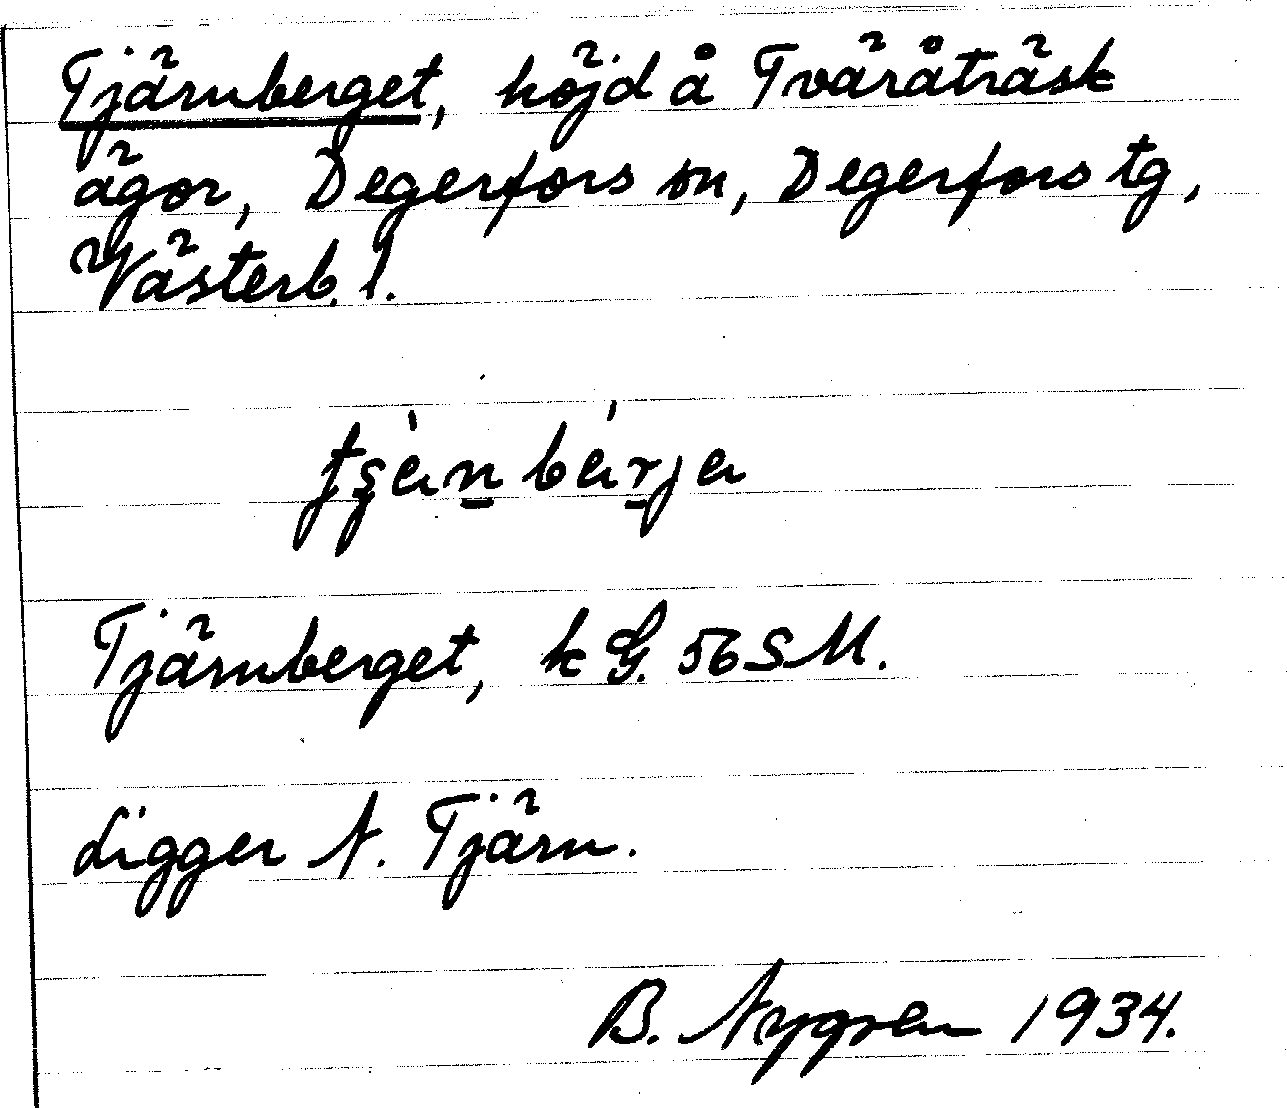 Tjärnberget, höjd å Tväråträsk
ägor, Degerfors sn, Degerfors tg,
Västerb. l.
Tjärnberget, k G. 56 S M.
Ligger N. Tjärn.
B. Nygren 1934.